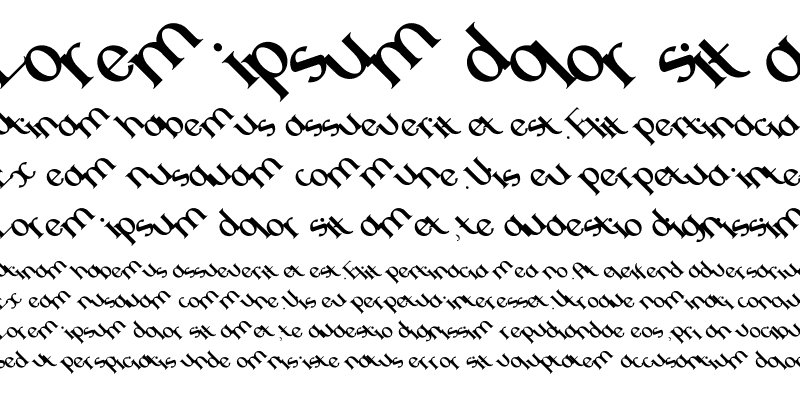 Lorem ipsum dolor sit a
utinam habemus assueverit et est. Elit pertinacia
Ex eam nusquam commune. Vis eu perpetua inte
Lorem ipsum dolor sit amet, te quaestio dignissim
utinam habemus assueverit et est. Elit pertinacia mea no. At eleifend adversariu
Ex eam nusquam commune. Vis eu perpetua interesset. Utroque nominati conclu
Lorem ipsum dolor sit amet, te quaestio dignissim repudiandae eos, pri an vocibu
Sed ut perspiciatis unde omnis iste natus error sit voluptatem accusantium dolor